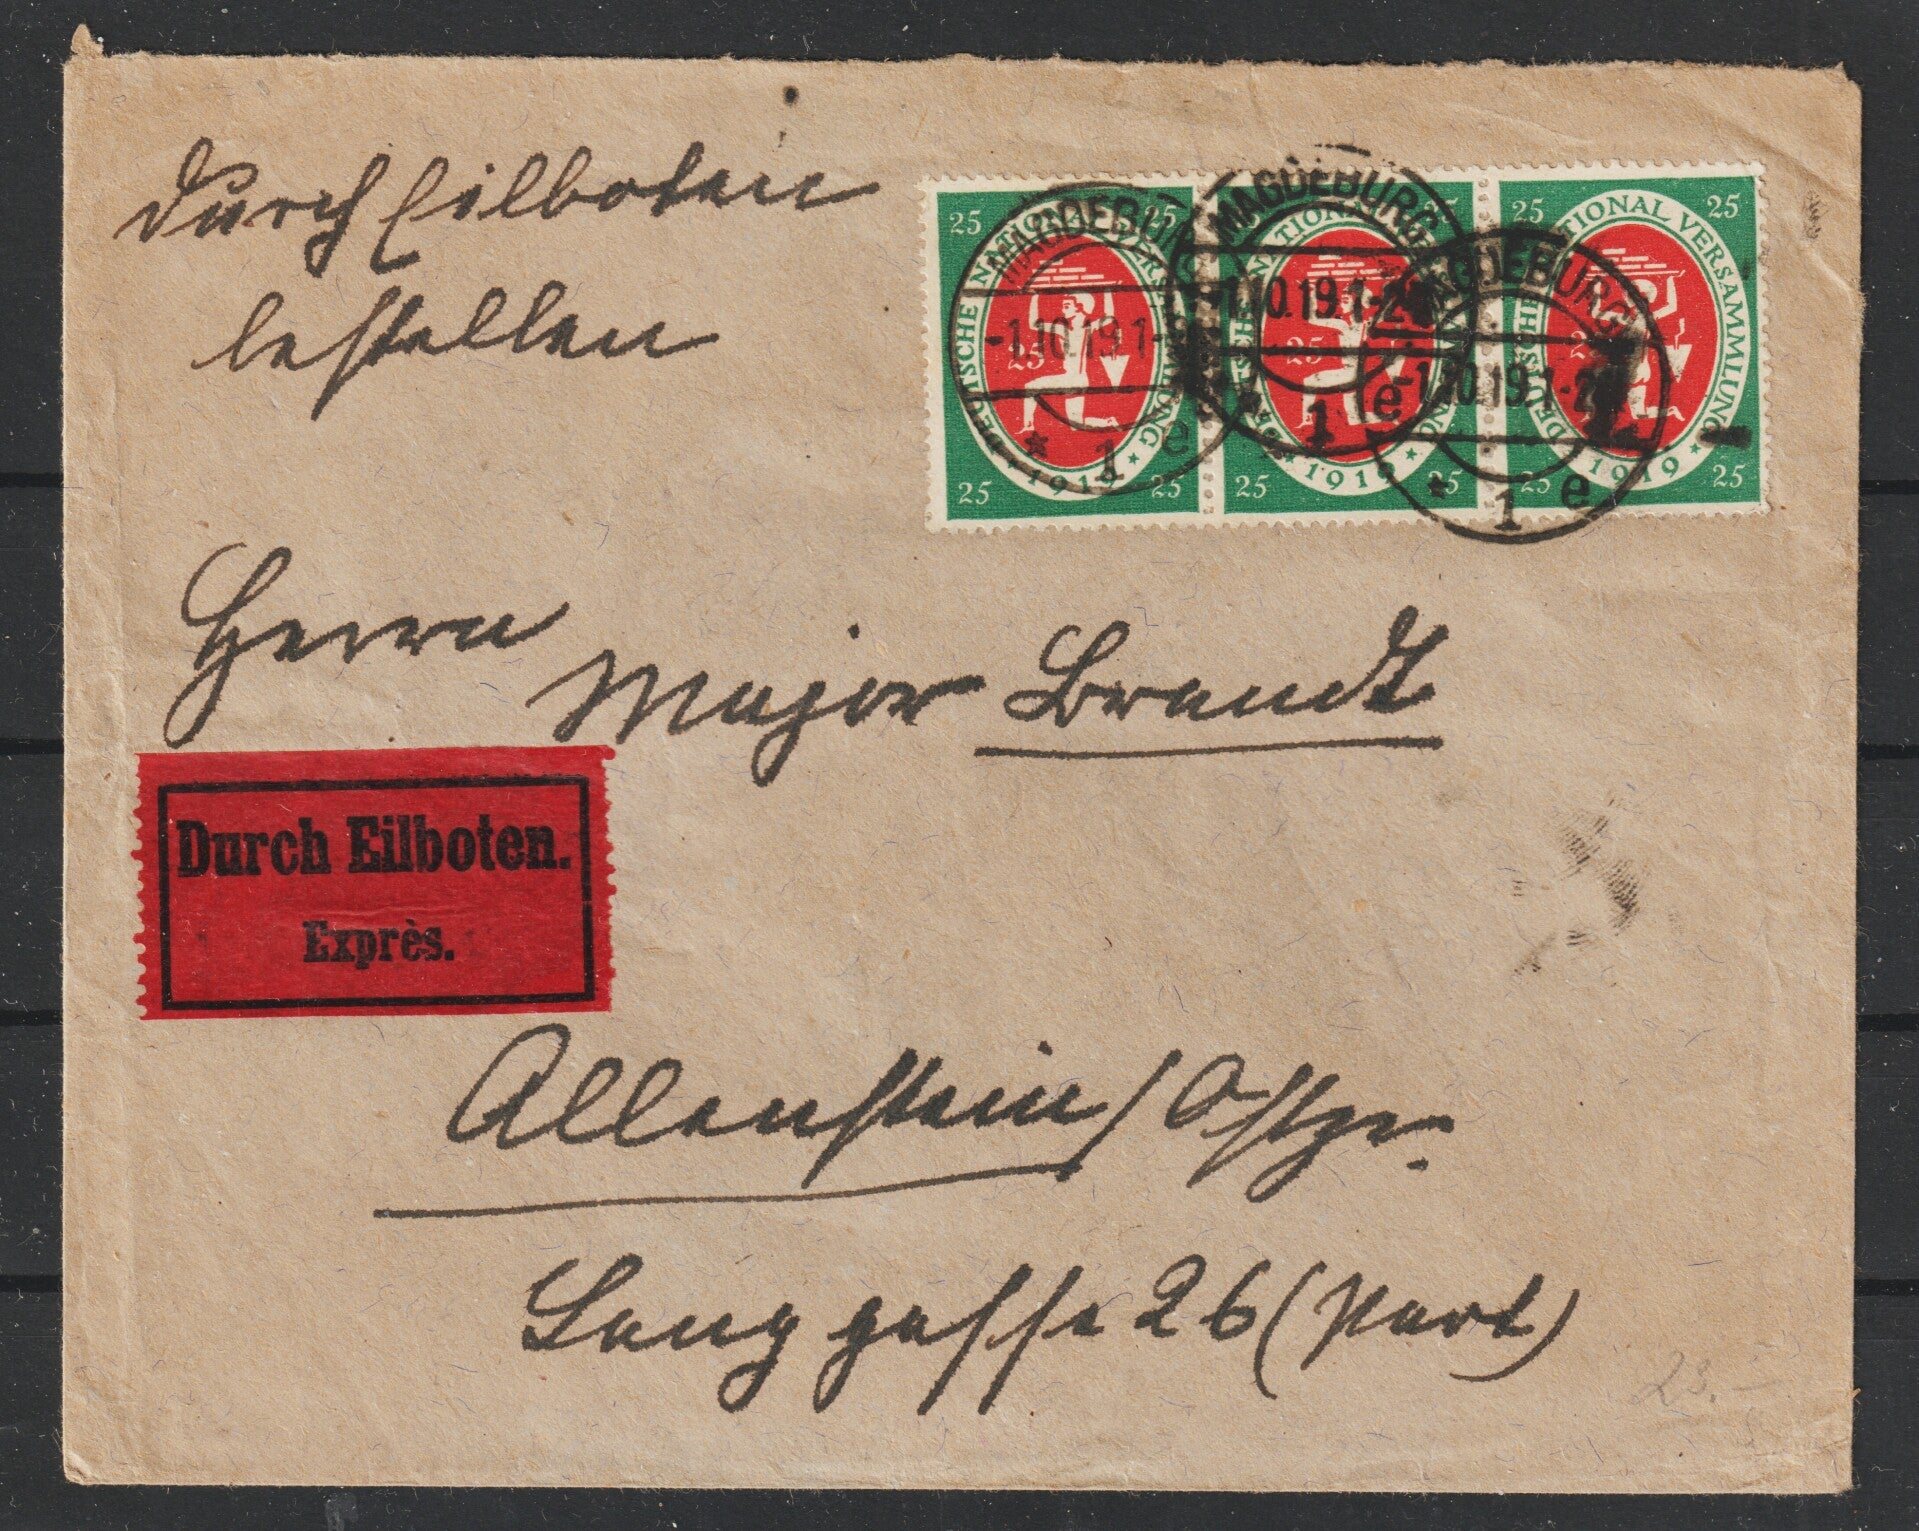 Durch Eilboten
bestellen
25 25 25 25 25
DEUTSCHE NATIONAL VERSAMMLUNG 1919
25 25 25 25 25
DEUTSCHE NATIONAL VERSAMMLUNG 1919
25 25 25 25 25
DEUTSCHE NATIONAL VERSAMMLUNG 1919
MAGDEBURG
-1.10.19.1-2
* 1 e
MAGDEBURG
-1.10.19.1-2
* 1 e
MAGDEBURG
-1.10.19.1-2
* 1 e
Herrn
Major Brandt
Durch Eilboten.
Exprès.
Allenstein/Ostpr.
Langgasse 26 (Part)
23.-